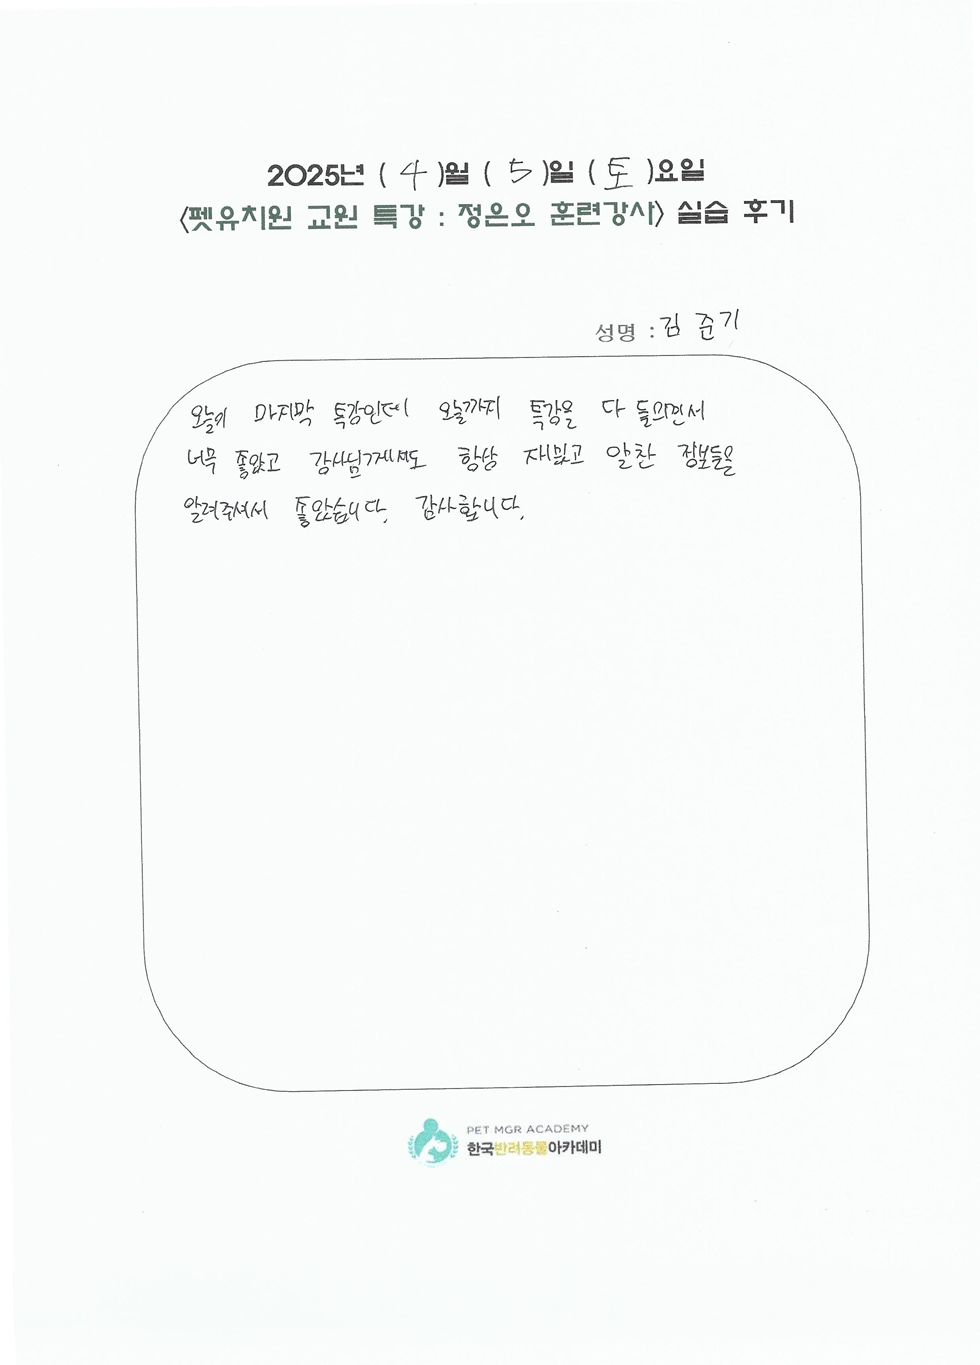 2025년 ( 4 )월 ( 5 )일 ( 토 )요일
<펫유치원 교원 특강 : 정은오 훈련강사> 실습 후기
성명 : 김준기
오늘이 마지막 특강인데 오늘까지 특강을 다 들으면서
너무 좋았고 강사님께서도 항상 재밌고 알찬 정보들을
알려주셔서 좋았습니다. 감사합니다.
PET MGR ACADEMY
한국반려동물아카데미